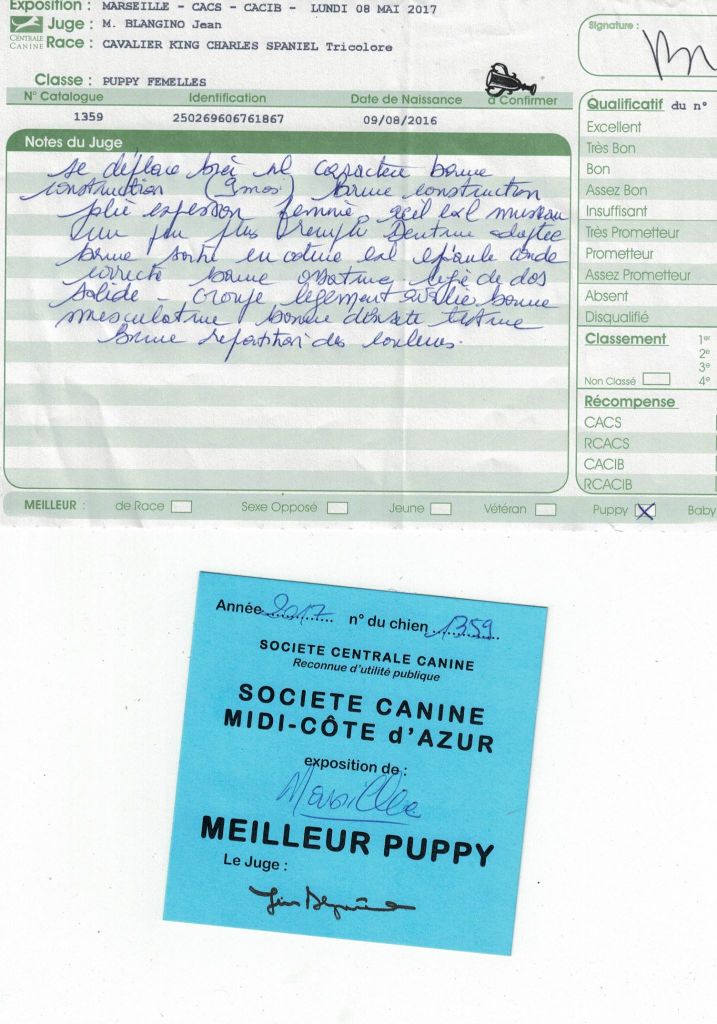 Exposition : MARSEILLE - CACS - CACIB - LUNDI 08 MAI 2017
Juge : M. BLANGINO Jean
CENTRALE
CANINE
Race : CAVALIER KING CHARLES SPANIEL Tricolore
Signature :
Classe : PUPPY FEMELLES
N° Catalogue Identification Date de Naissance à Confirmer
1359 250269606761867 09/08/2016
Notes du Juge
se déplace bien caractère bonne
construction (9mos) bonne construction
expression oeil museau
un peu plus rempli Denture adaptée
bonne sortie épaule
correcte bonne ossature ligne de dos
solide - croupe légèrement avalée bonne
musculature bonne texture
Bonne répartition des couleurs.
Qualificatif du n°
Excellent
Très Bon
Bon
Assez Bon
Insuffisant
Très Prometteur
Prometteur
Assez Prometteur
Absent
Disqualifié
Classement 1er
2e
3e
Non Classé 4e
Récompense
CACS
RCACS
CACIB
RCACIB
MEILLEUR : de Race Sexe Opposé Jeune Vétéran Puppy X Baby
Année 2017 n° du chien 1359
SOCIETE CENTRALE CANINE
Reconnue d'utilité publique
SOCIETE CANINE
MIDI-CÔTE d'AZUR
exposition de :
Marseille
MEILLEUR PUPPY
Le Juge :